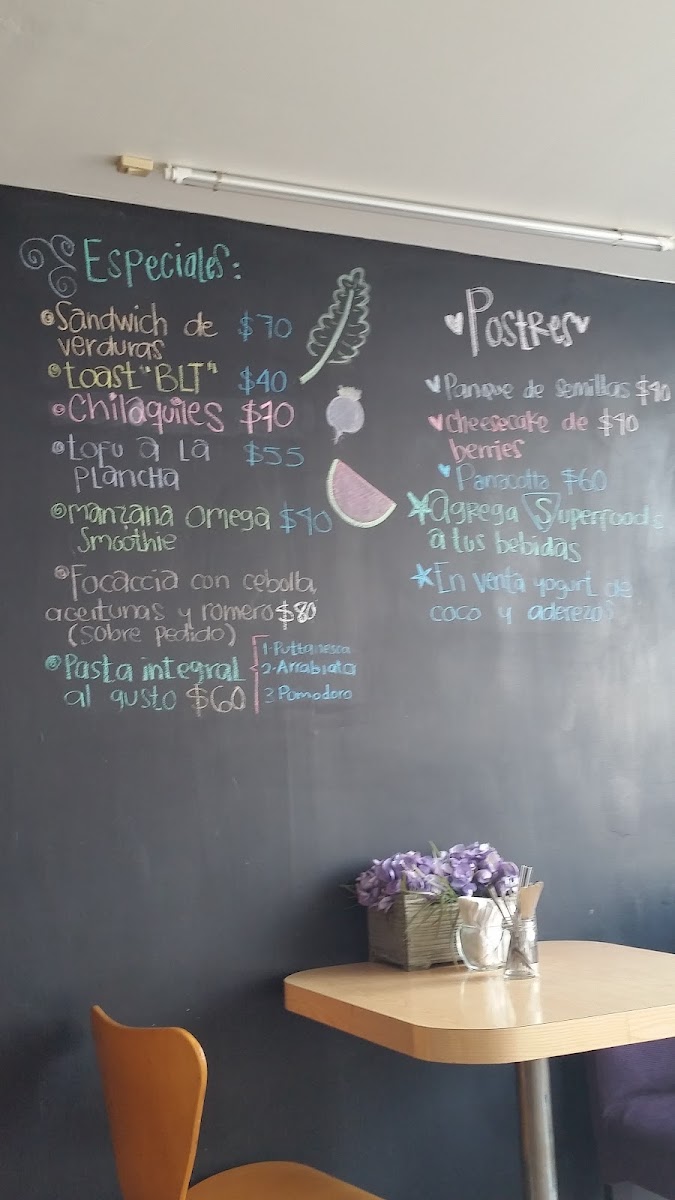 Especiales:
Sandwich de $70
verduras
toast "BLT" $40
Chilaquiles $70
tofu a la $55
plancha
manzana omega $40
Smoothie
Focaccia con cebolla,
aceitunas y romero $80
(sobre pedido)
Pasta integral
al gusto $60
1·Puttanesca
2·Arrabiata
3.Pomodoro
Postres
Panque de semillas $40
Cheesecake de $40
berries
Panacotta $60
Agrega Superfoods
a tus bebidas
En venta yogurt de
coco y aderezos